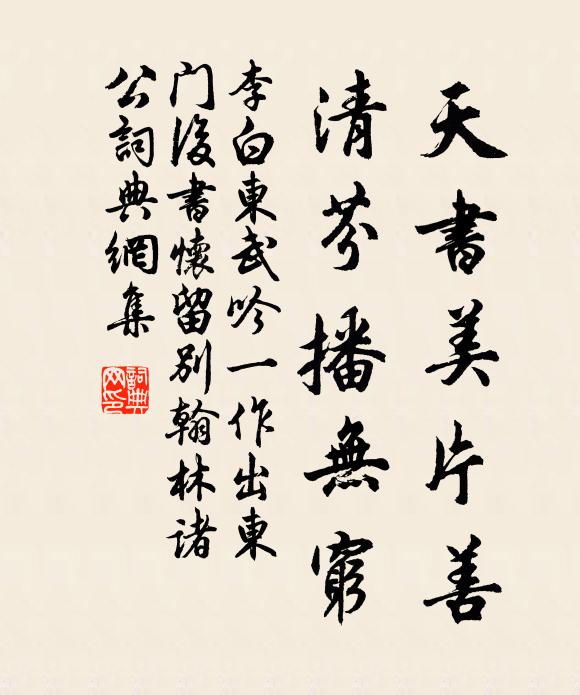 天書美片善
清芬播無窮
李白東武吟一作出東
门後書懷留別翰林諸
公詞典網集
詞典網印